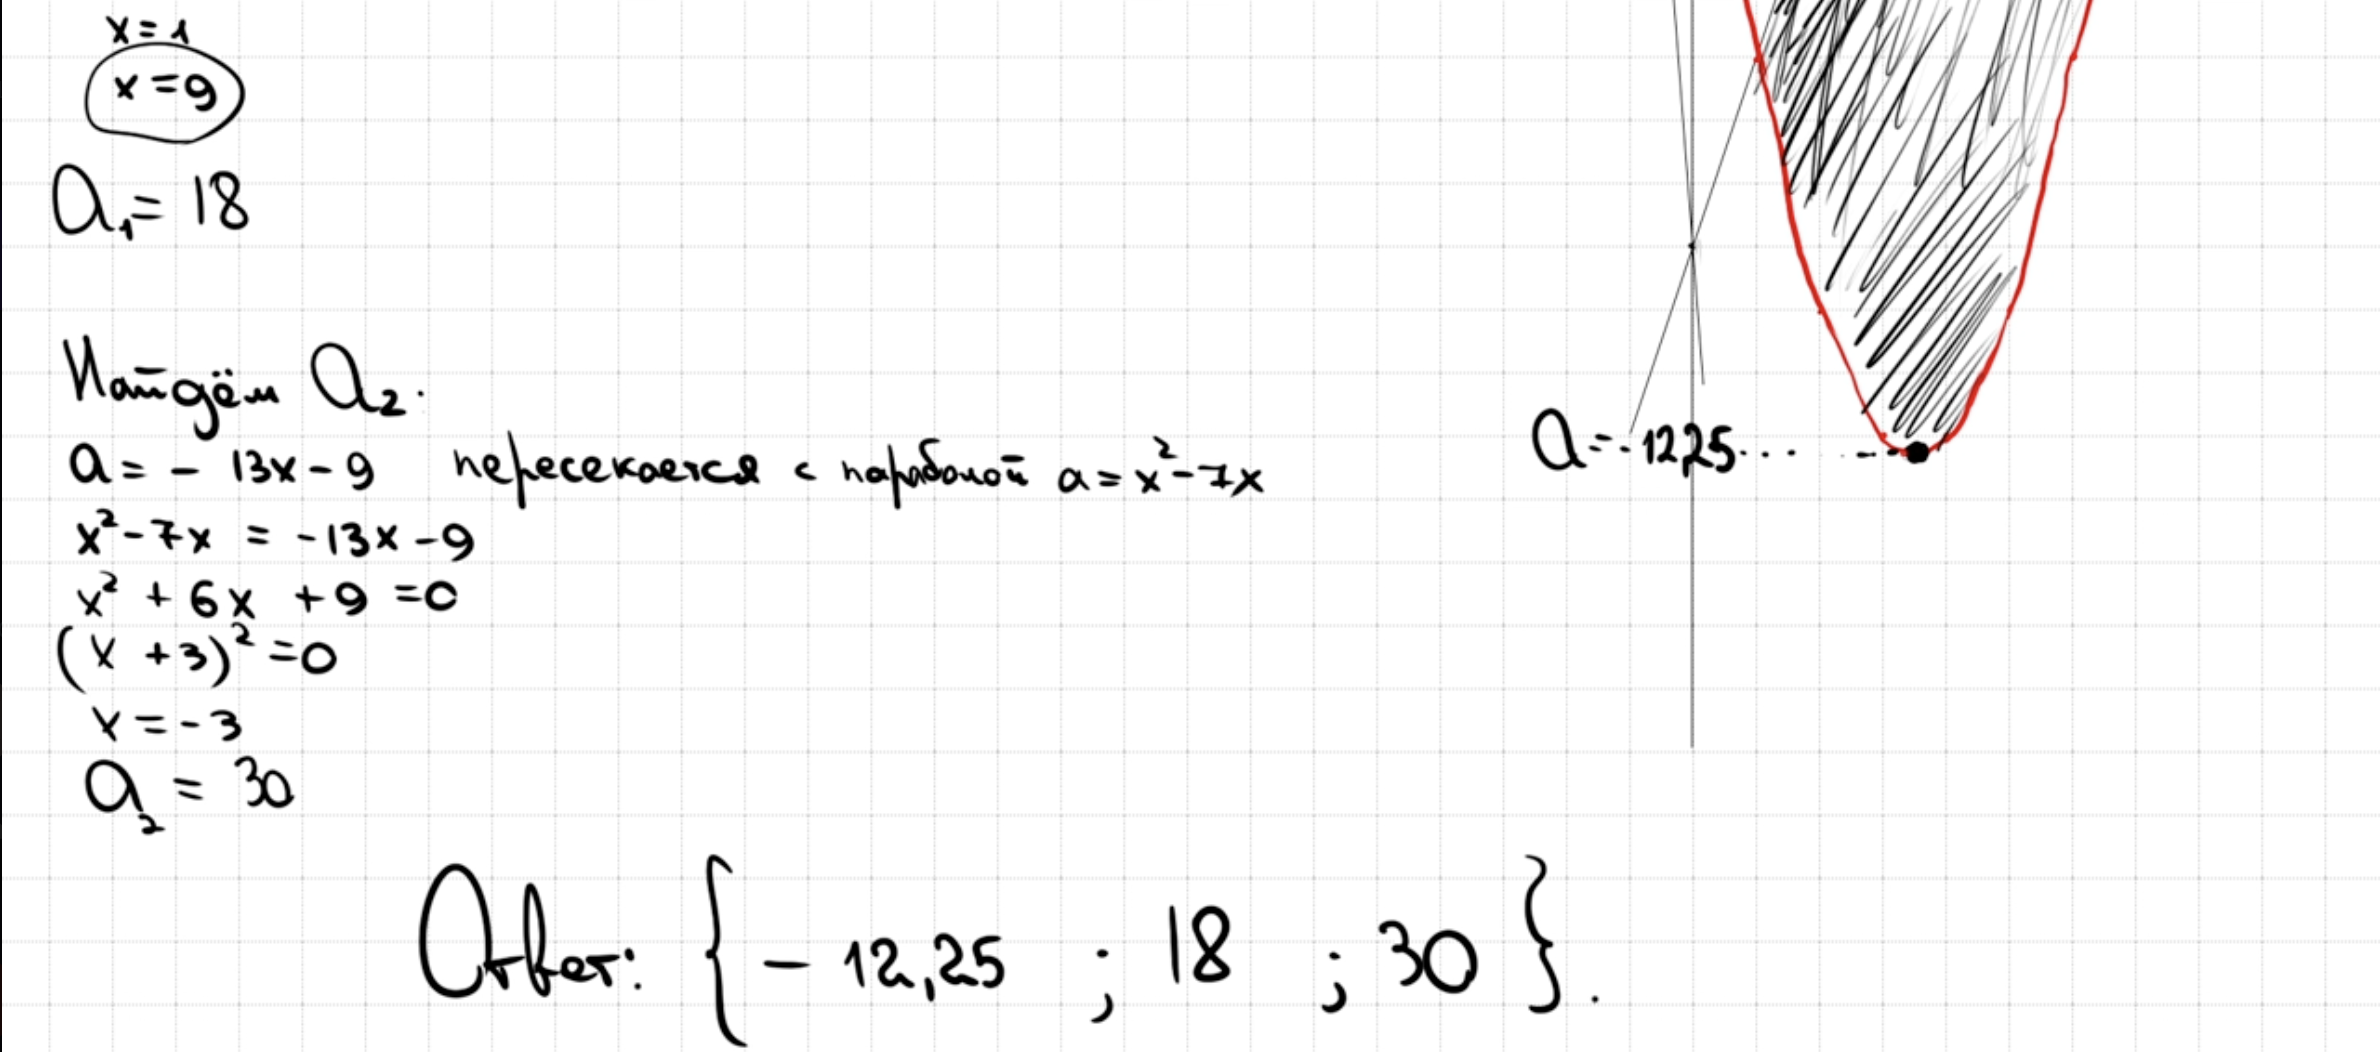 x=1
x=9
a₁=18
Найдём a₂.
a = - 13x - 9 пересекается с параболой a = x² - 7x
a = - 12,25
x² - 7x = -13x - 9
x² + 6x + 9 = 0
(x + 3)² = 0
x = -3
a₂ = 30
Ответ: { - 12,25 ; 18 ; 30 }.